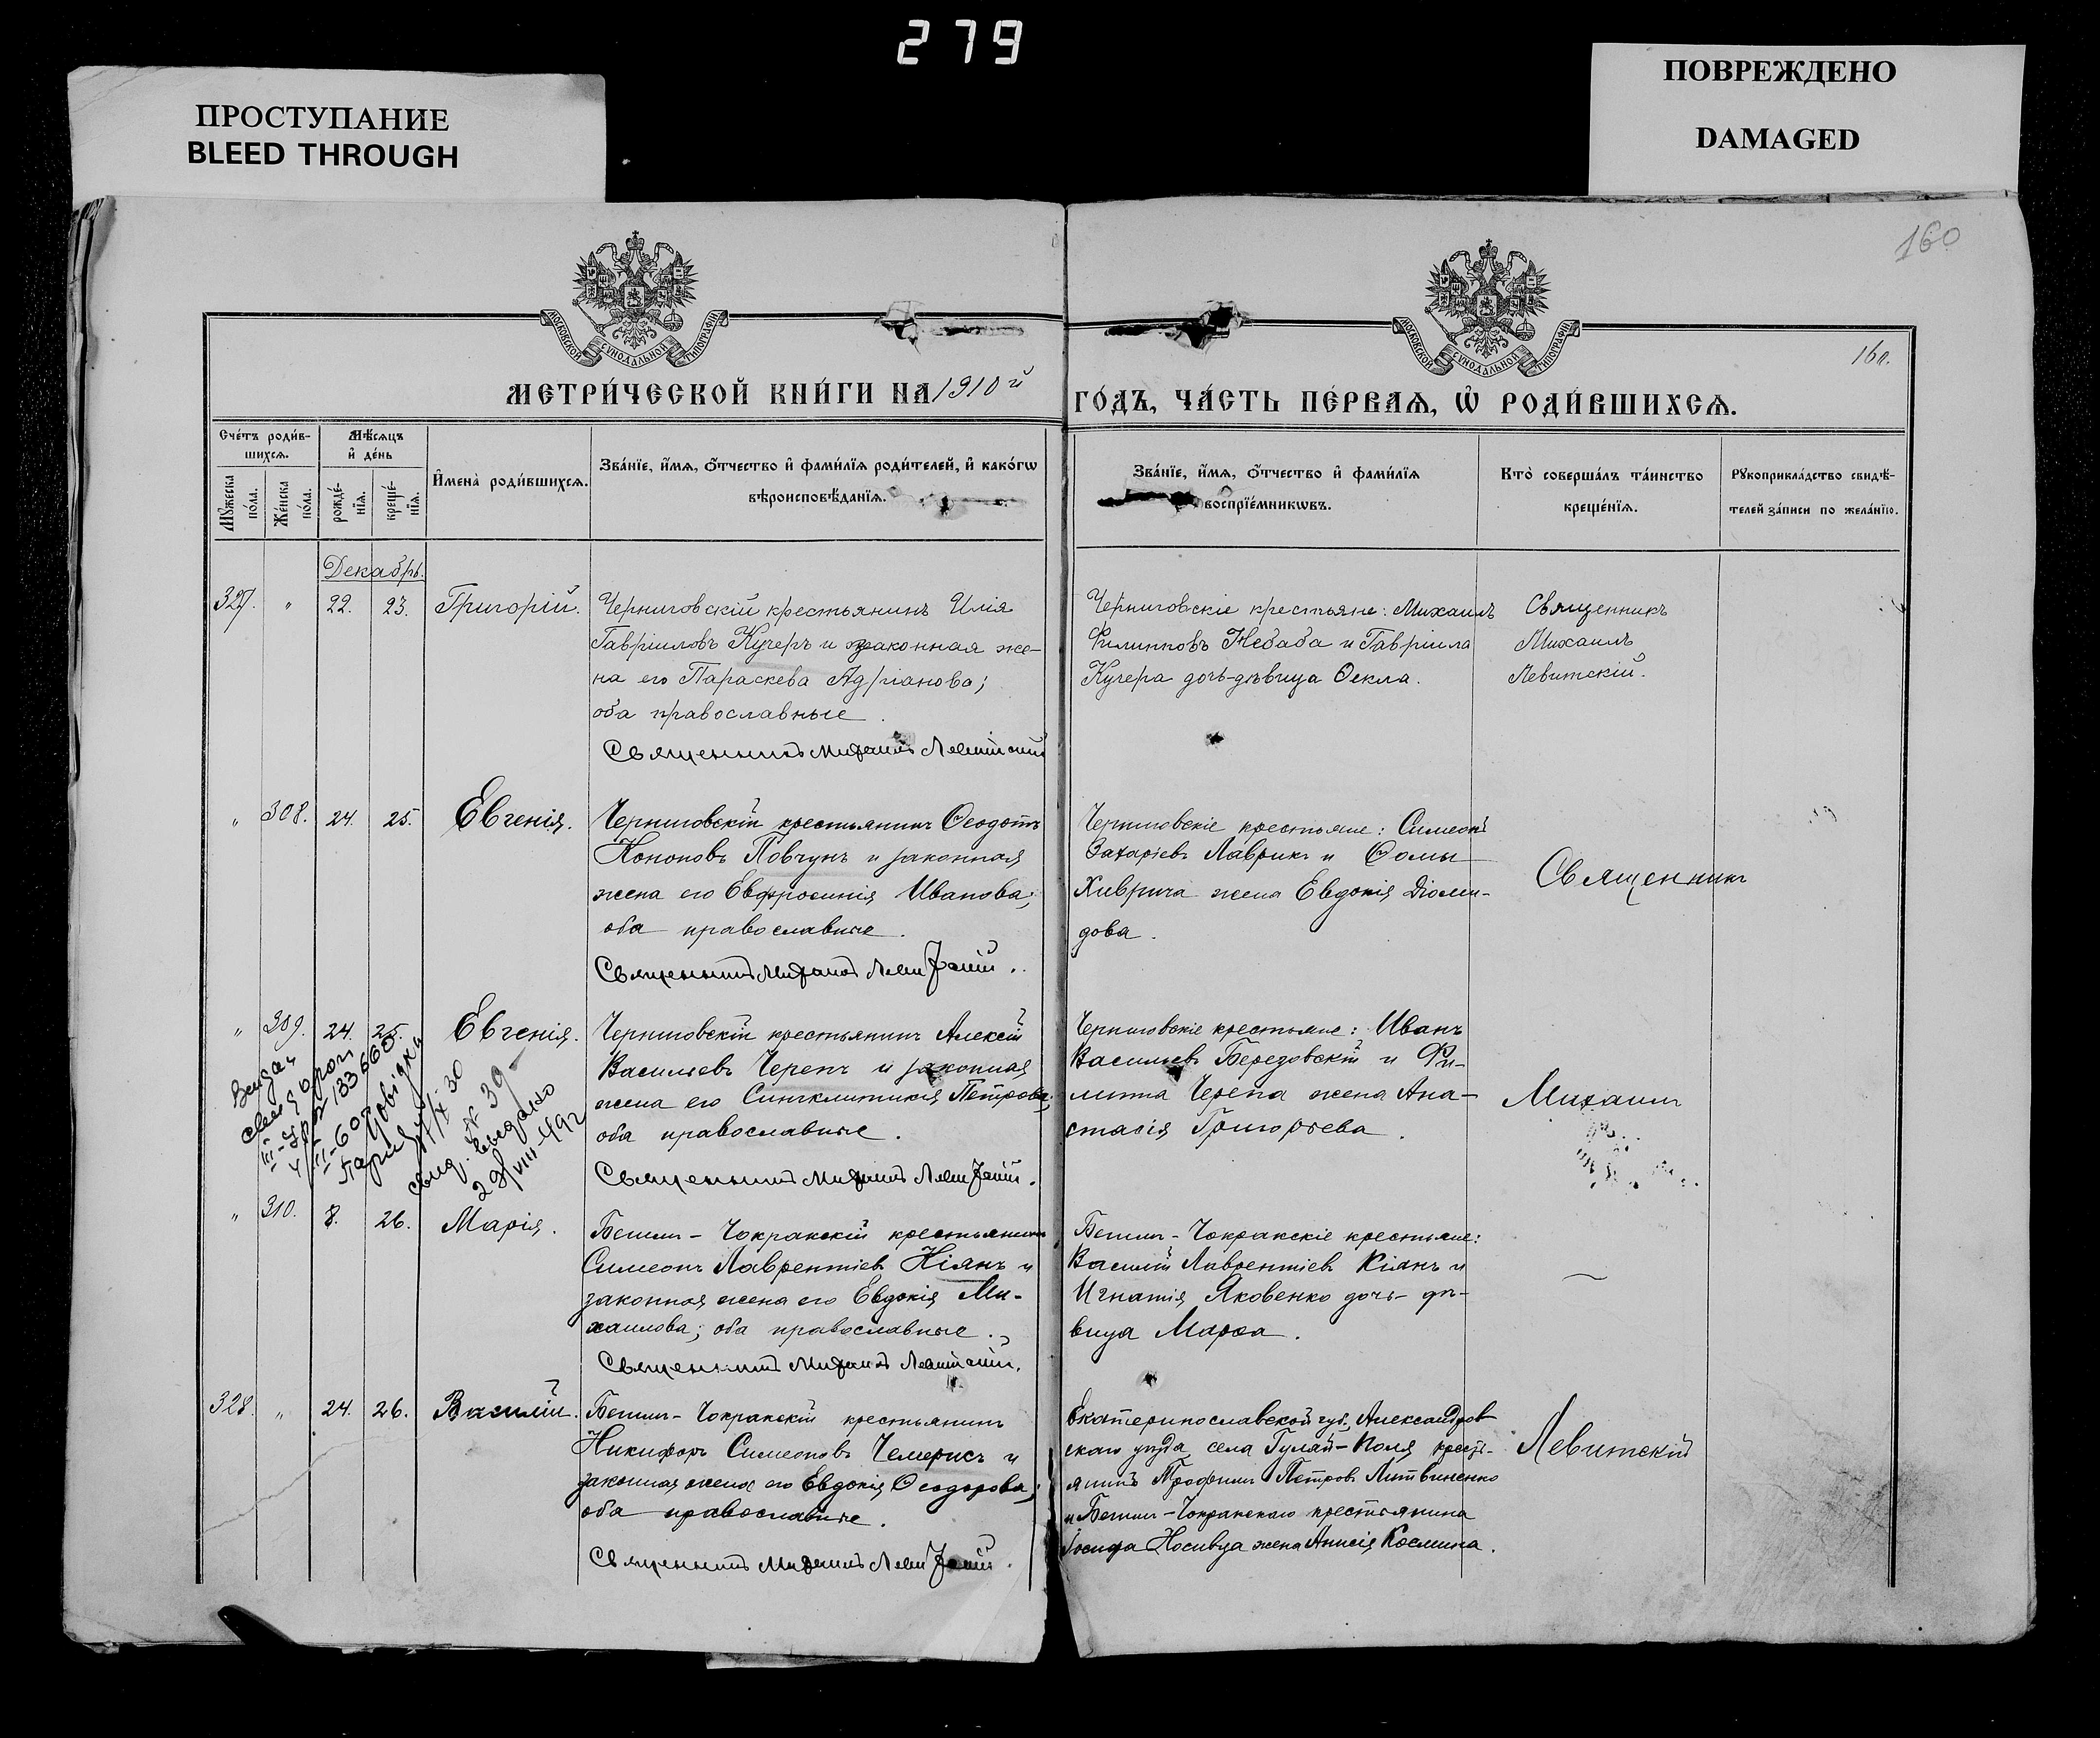 279
ПРОСТУПАНИЕ
BLEED THROUGH
ПОВРЕЖДЕНО
DAMAGED
160
МОСКОВСКОЙ СУНОДАЛЬНОЙ ТИПОГРАФІИ
МОСКОВСКОЙ СУНОДАЛЬНОЙ ТИПОГРАФІИ
160.
МЕТРИ́ЧЕСКОЙ КНИ́ГИ НА 1910й
ГО́ДЪ, ЧА́СТЬ ПЕ́РВАѦ, Ѡ҆ РОДИ́ВШИХСѦ.
Сче́тъ роди́в-
шихсѧ.
Мѣ́сѧцъ
и҆ де́нь
Мꙋ́жеска
по́ла.
Же́нска
по́ла.
рожде́-
нїѧ.
креще́-
нїѧ.
И҆мена̀ роди́вшихсѧ.
Зва́нїе, и҆́мѧ, ѻ҆́тчество и҆ фами́лїѧ роди́телей, и҆ како́гѡ
вѣроисповѣ́данїѧ.
Зва́нїе, и҆́мѧ, ѻ҆́тчество и҆ фами́лїѧ
воспрїе́мникѡвъ.
Кто̀ соверша́лъ та́инство
креще́нїѧ.
Рꙋкоприкла́дство свидѣ́-
телей за́писи по жела́нїю.
Декабрь.
327. " 22. 23. Григорій.
Черниговскій крестьянинъ Илія
Гавріиловъ Кучеръ и законная же-
на его Параскева Адріанова;
оба православные.
Священникъ Михаилъ Левитскій
Черниговскіе крестьяне: Михаилъ
Филипповъ Небаба и Гавріила
Кучера дочь-дѣвица Ѳекла.
Священникъ
Михаилъ
Левитскій.
" 308. 24. 25. Евгенія.
Черниговскій крестьянинъ Ѳеодотъ
Кононовъ Повчунъ и законная
жена его Евфросинія Иванова;
оба православные.
Священникъ Михаилъ Левитскій.
Черниговскіе крестьяне: Симеонъ
Захаріевъ Лаврикъ и Ѳомы
Хиврича жена Евдокія Діоми-
дова.
Священникъ
" 309. 24. 25. Евгенія.
Черниговскій крестьянинъ Алексій
Васильевъ Черепъ и законная
жена его Синклитикія Петрова;
оба православные.
Священникъ Михаилъ Левитскій.
Черниговскіе крестьяне: Иванъ
Васильевъ Березовскій и Фи-
липпа Черепа жена Ана-
стасія Григорьева.
Михаилъ
№ 39
выдано
" 310. 8. 26. Марія.
Бешли-Чокракскій крестьянинъ
Симеонъ Лаврентіевъ Кіянъ и
законная жена его Евдокія Ми-
хаилова; оба православные.
Священникъ Михаилъ Левитскій.
Бешли-Чокракскіе крестьяне:
Василій Лаврентіевъ Кіянъ и
Игнатія Яковенко дочь-дѣ-
вица Марѳа.
328. " 24. 26. Василій.
Бешли-Чокракскій крестьянинъ
Никифоръ Симеоновъ Чемерисъ и
законная жена его Евдокія Ѳеодорова;
оба православные.
Священникъ Михаилъ Левитскій.
Екатеринославской губ., Александров
скаго уѣзда села Гуляй-Поля кресть-
янинъ Трофимъ Петровъ Литвиненко
и Бешли-Чокракскаго крестьянина
Іосифа Носивца жена Анисія Космина.
Левитскій